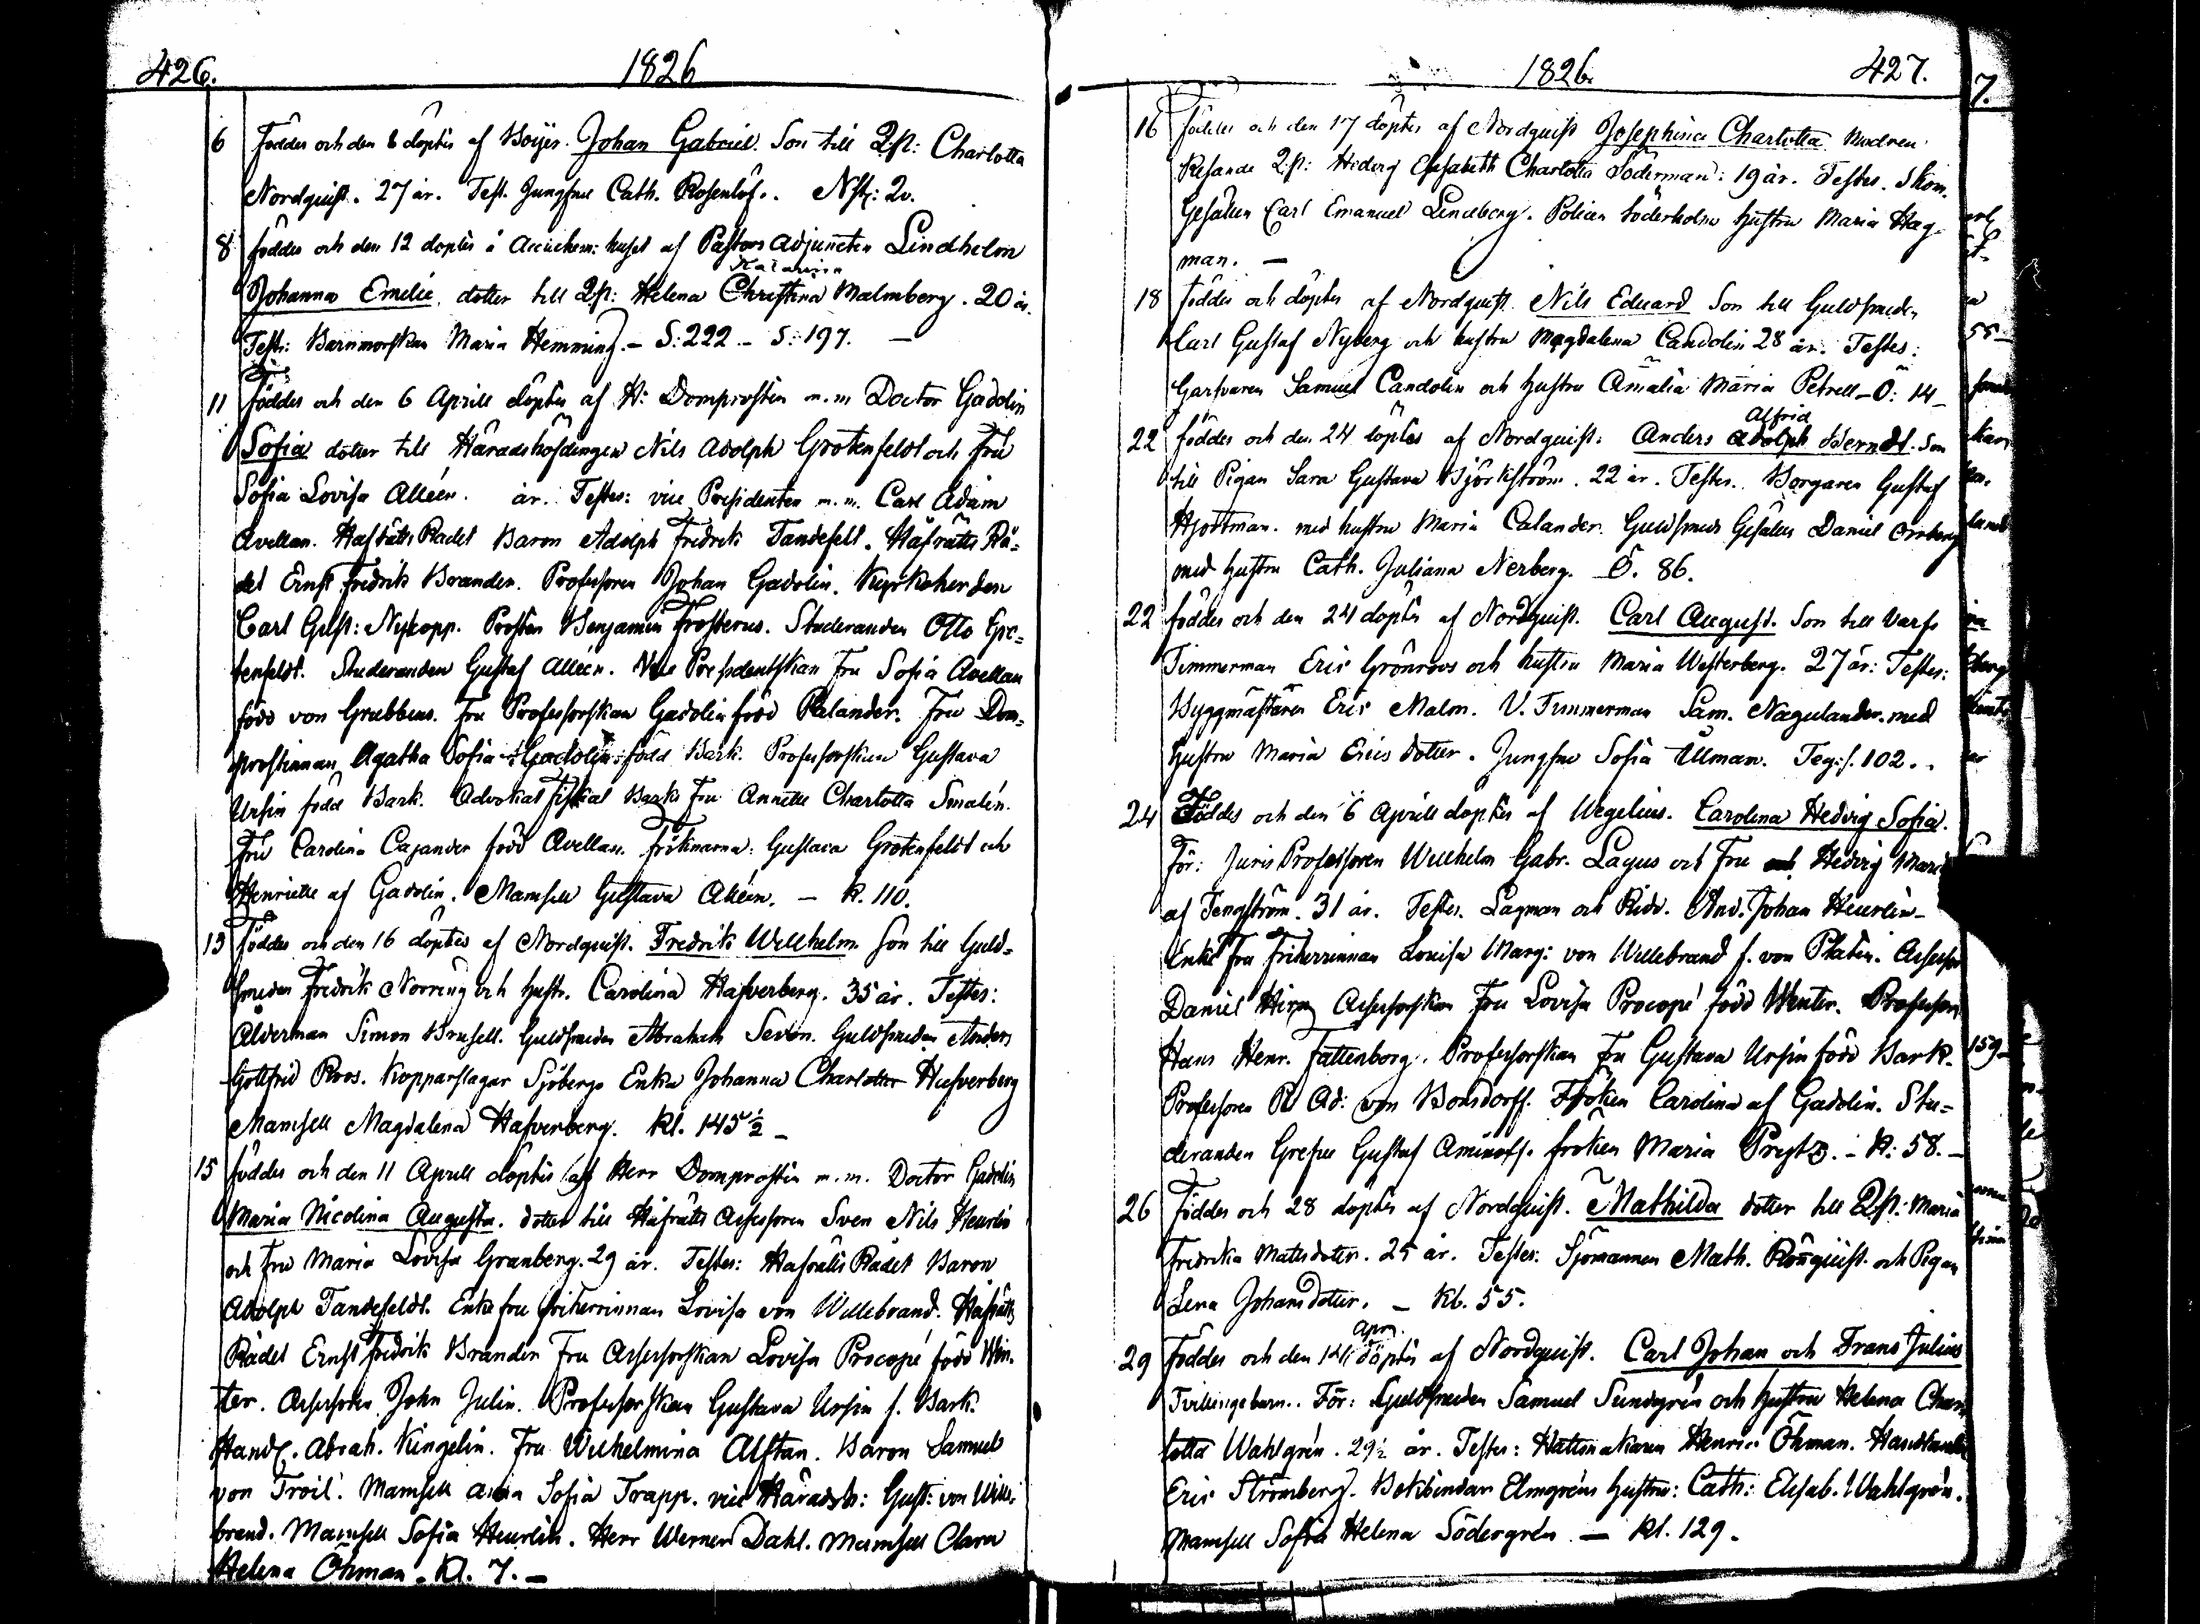 426. 1826
6 Föddes och den 8 döptes af Boijer. Johan Gabriel. Son till Q.p.: Charlotta
Nordquist. 27 år. Test. Jungfru Cath. Rosenlöf.. 20.
8 föddes och den 12 döptes å huset af Pastors Adjuncten Lindholm
Katarina
Johanna Emelie. dotter till Q.p.: Helena Christina Malmberg. 20 år.
Test: Barnmorskan Maria Hemming. - S: 222 - S: 197. —
11 föddes och den 6 Aprill döptes af H: Domprosten m. m Doctor Gadolin
Sofia dotter till Häradshöfdingen Nils Adolph Grotenfeldt och Fru
Sofia Lovisa Alléen. år. Testes: vice Presidenten m. m. Carl Adam
Avellan. Hafrätts Rådet Baron Adolph Fredrik Tandefelt. Håfrätts Rå-
det Ernst Fredrik Brander. Professoren Johan Gadolin. Kyrkoherden
Carl Gust: Nykopp. Prosten Benjamin Frosterus. Studeranden Otto Gro-
tenfeldt. Studeranden Gustaf Alléen. Vice Presidentskan Fru Sofia Avellan
född von Grubbens. Fru Professorskan Gadolin född Palander. Fru Dom-
prostinnan Agatha Sofia Gadolin född Bark. Professorskan Gustava
Ursin född Bark. Advokat Fiskal Barks Fru Annette Charlotta Smalén.
Fru Carolina Cajander född Avellan. fröknarna: Gustava Grotenfeldt och
Henriette af Gadolin. Mamsell Gustava Alléen. — K. 110.
13 föddes och den 16 döptes af Nordquist. Fredrik Willhelm Son till Guld-
smeden Fredrik Norring och hustr. Carolina Hafverberg. 35 år. Testes:
Ålderman Simon Brusell. Guldsmeden Abraham Sevon. Guldsmeden Anders
Gottfrid Roos. Kopparslagar Sjöbergs Enka Johanna Charlotta Hafverberg
Mamsell Magdalena Hafverberg. Kl. 145½ -
15 föddes och den 11 Aprill döptes af Herr Domprosten m. m. Doctor Gadolin
Maria Nicolina Augusta. dotter till Håfrätts Assessoren Sven Nils Heurlin
och Fru Maria Lovisa Granberg. 29 år. Testes: Hafrätts Rådet Baron
Adolph Tandefeldt. Enke fru friherrinnan Lovisa von Willebrand. Hafrätts
Rådet Ernst Fredrik Brander Fru Assessorskan Lovisa Procopé född Win-
ter. Assessoren John Julin. Professorskan Gustava Ursin f. Bark.
Handl. Abrah. Kingelin. Fru Wilhelmina Alftan. Baron Samuel
von Troil. Mamsell Anna Sofia Trapp. vice Häradsh: Gust: von Wille-
brand. Mamsell Sofia Heurlin. Herr Werner Dahl. Mamsell Clara
Helena Öhman. Kl. 7. —
1826. 427.
16 föddes och den 17 döptes af Nordquist Josephina Charlotta Modren
Resande Q.p: Hedvig Elisabeth Charlotta Söderman: 19 år. Testes. Skom.
Gesällen Carl Emanuel Lindberg. Policen Söderholms hustru Maria Hag-
man. —
18 föddes och döptes af Nordquist Nils Eduard Son till Guldsmeden
Carl Gustaf Nyberg och hustru Magdalena Candolin 28 år. Testes:
Garfvaren Samuel Candolin och hustru Amalia Maria Petrell - Ö: 14 -
Alfrid
22 föddes och den 24 döptes af Nordquist: Anders Adolph Berndt. Son
till Pigan Sara Gustava Björkström. 22 år. Testes. Borgaren Gustaf
Hjortman. med hustru Maria Calander. Guldsmeds Gesällen Daniel Ornberg
med hustru Cath. Juliana Nerberg. Ö. 86.
22 föddes och den 24 döptes af Nordquist. Carl August. Son till Varfs
Timmerman Eric Grönroos och hustru Maria Westerberg. 27 år: Testes:
Byggmästaren Eric Malm. V. Timmerman Sam. Nagulander. med
hustru Maria Erics dotter. Jungfru Sofia Ullman. Teg: f. 102..
24 Föddes och den 6 Aprill döptes af Wegelius. Carolina Hedvig Sofia.
För: Juris Professoren Willhelm Gabr. Lagus och Fru Hedvig Maria
af Tengström. 31 år. Testes. Lagman och Ridd. And. Johan Heurlin -
Enke Fru Friherrinnan Lovisa Marg: von Willebrand f. von Platen. Assessor
Daniel Hirn Assessorskan Fru Lovisa Procopé född Winter. Professor
Hans Henr. Fattenborg. Professorskan Fru Gustava Ursin född Bark.
Professoren P. Ad: von Bonsdorff. Fröken Carolina af Gadolin. Stu-
deranden Grefve Gustaf Aminoff. fröken Maria Prytz. - K: 58. -
26 Föddes och 28 döptes af Nordquist. Mathilda dotter till Q.p: Maria
Fredrika Mattsdotter. 25 år. Testes: Sjömannen Math. Rönquist och Pigan
Lena Johansdotter. - Kl. 55.
Apr.
29 Föddes och den 14 döptes af Nordquist. Carl Johan och Frans Julius
Tvillingebarn.. För: Guldsmeden Samuel Sundgrén och hustru Helena Char-
lotta Wahlgrén. 29½ år. Testes: Hattmakaren Henric Öhman. Handlanden
Eric Strömberg. Bokbindar Elmgréns hustru: Cath: Elisab. Wahlgrén.
Mamsell Sofia Helena Södergrén. — Kl. 129.